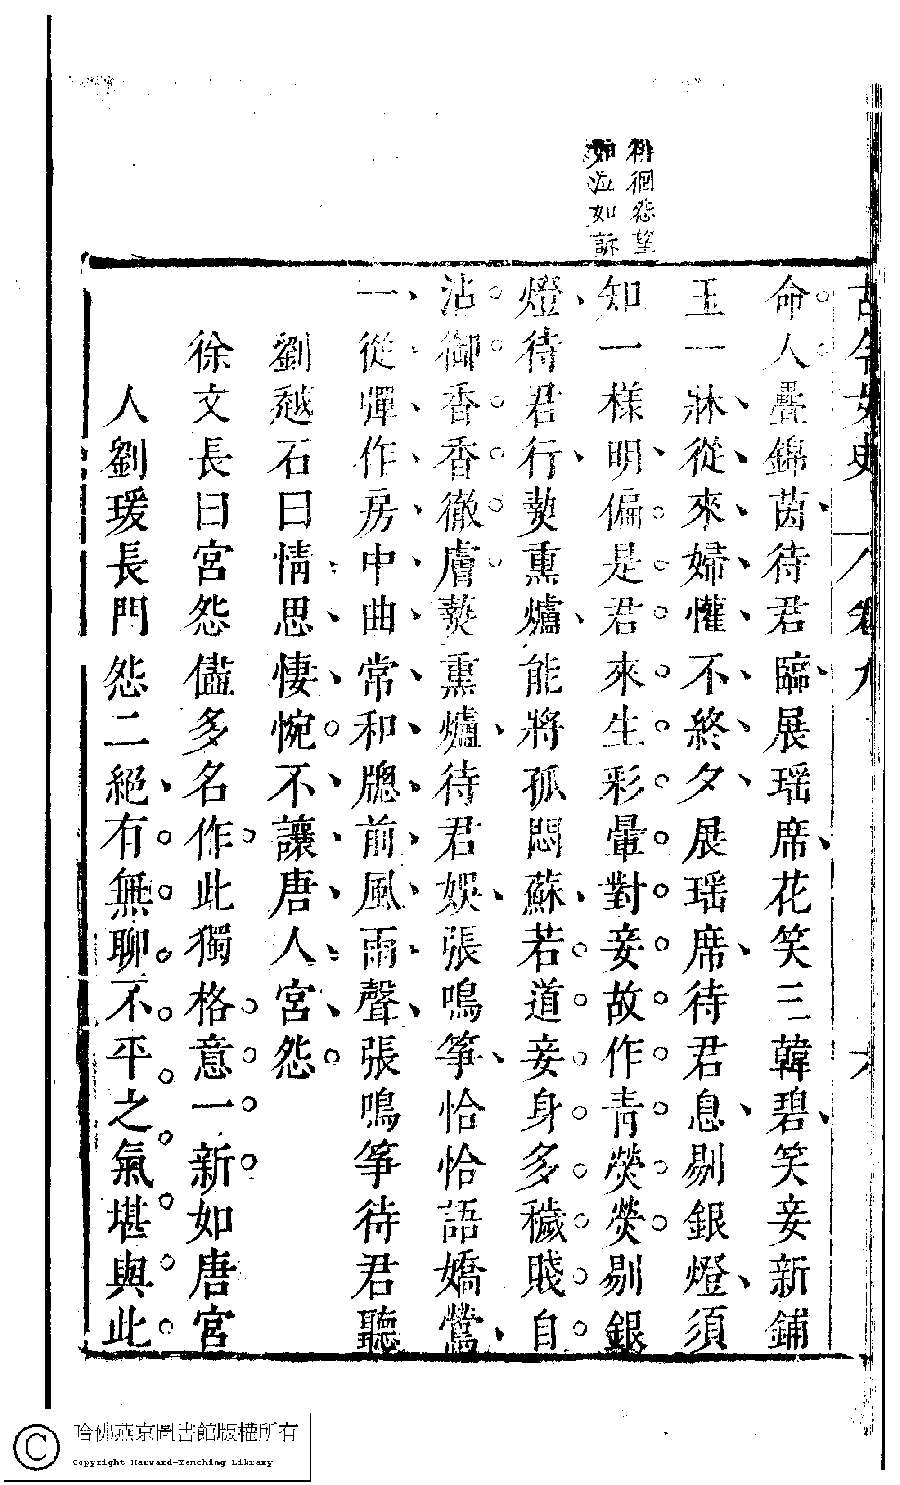 古今女史 八 卷九 六
徘徊怨望
如泣如訴
命人疊錦茵待君臨展瑶席花笑三韓碧笑妾新鋪
玉一牀從來婦懽不終夕展瑶席待君息剔銀燈須
知一樣明偏是君來生彩暈對妾故作青熒熒剔銀
燈待君行爇熏爐能將孤悶蘇若道妾身多穢賤自
沾御香香徹膚爇熏爐待君娛張鳴箏恰恰語嬌鶯
一從彈作房中曲常和牕前風雨聲張鳴箏待君聽
劉越石曰情思悽惋不讓唐人宮怨
徐文長曰宮怨儘多名作此獨格意一新如唐宮
人劉瑗長門怨二絕有無聊不平之氣堪與此
哈佛燕京圖書館版權所有
Copyright Harvard-Yenching Library